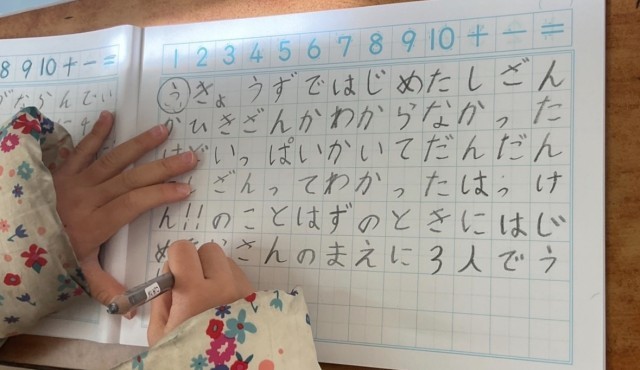 8 9 10 + − =
1 2 3 4 5 6 7 8 9 10 + − =
らんでい
うきょうずではじめたしざん
かひきざんかわからなかった
どいっぱいかいてだんだん
ざんってわかったはっけ
ん!!のことはずのときにはじ
め
さんのまえに3人でう